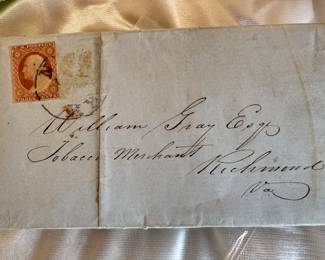 William Gray Esq
Tobacco Merchant
Richmond
Va